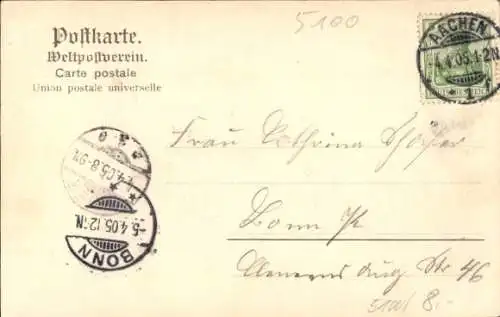 5100
Postkarte.
Weltpostverein.
Carte postale
Union postale universelle
AACHEN
4.4.05.1-2N
* 1 f
4.05.8-9N
5.4.05.12-1N.
BONN
Frau Kathrina
Bonn
Clemens Aug Str 46
5100/ 8.-